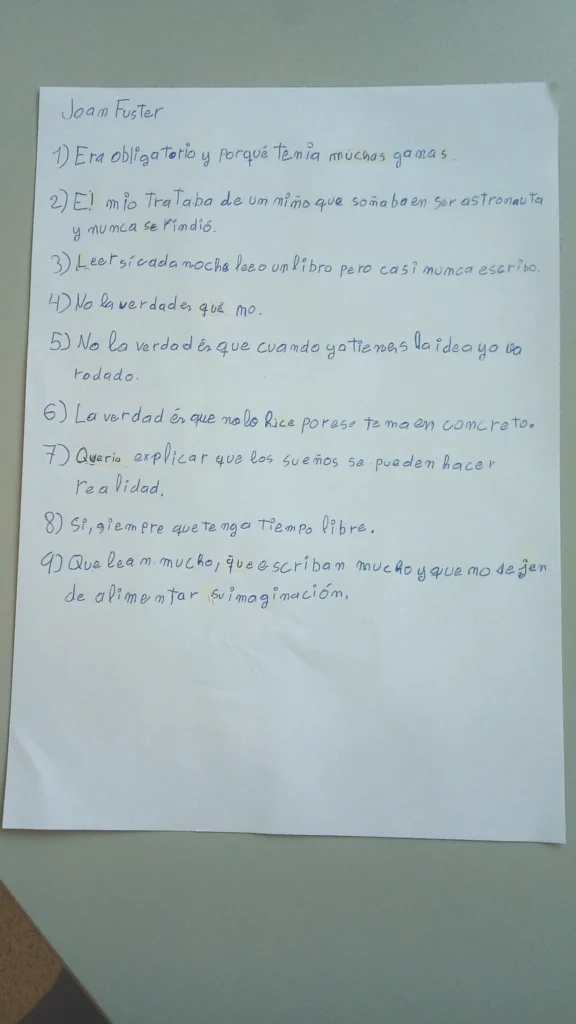 Joan Fuster
1) Era obligatorio y porqué tenia muchas ganas.
2) El mio trataba de un niño que soñaba en ser astronauta
y nunca se rindió.
3) Leer sí cada noche leeo un libro pero casi nunca escribo.
4) No la verdad es que no.
5) No la verdad és que cuando ya tienes la idea yo va
rodado.
6) La verdad és que no lo hice por ese tema en concreto.
7) Queria explicar que los sueños se pueden hacer
realidad.
8) Si, siempre que tenga tiempo libre.
9) Que lean mucho, que escriban mucho y que no dejen
de alimentar su imaginación.